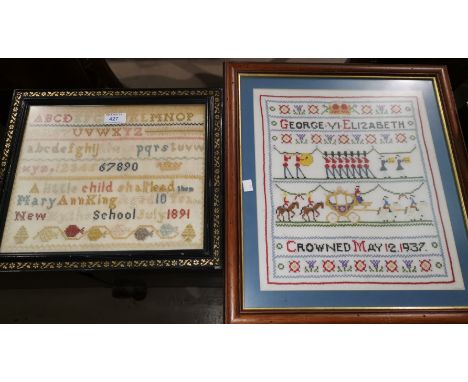 427
ABCDEFGHIJKLMNOP
UVWXYZ
abcdefghij pqrstuvw
xyz 67890
A little child shall lead them
Mary Ann King aged 10 Years
New School July 1891
GEORGE·VI·ELIZABETH
CROWNED MAY 12. 1937.